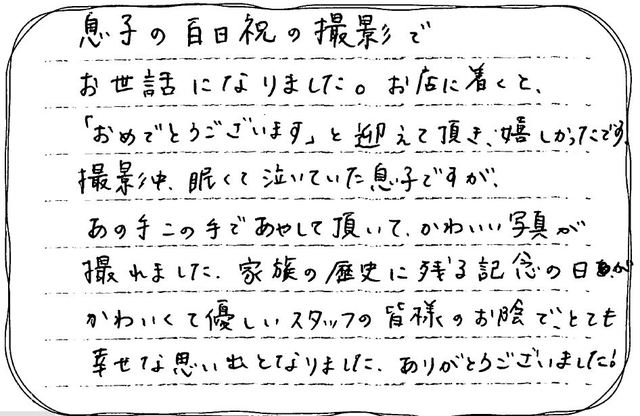 息子の百日祝の撮影で
お世話になりました。お店に着くと、
「おめでとうございます」と迎えて頂き、嬉しかったです。
撮影中、眠くて泣いていた息子ですが、
あの手この手であやして頂いて、かわいい写真が
撮れました。家族の歴史に残る記念の日が
かわいくて優しいスタッフの皆様のお陰で、とても
幸せな思い出となりました。ありがとうございました!